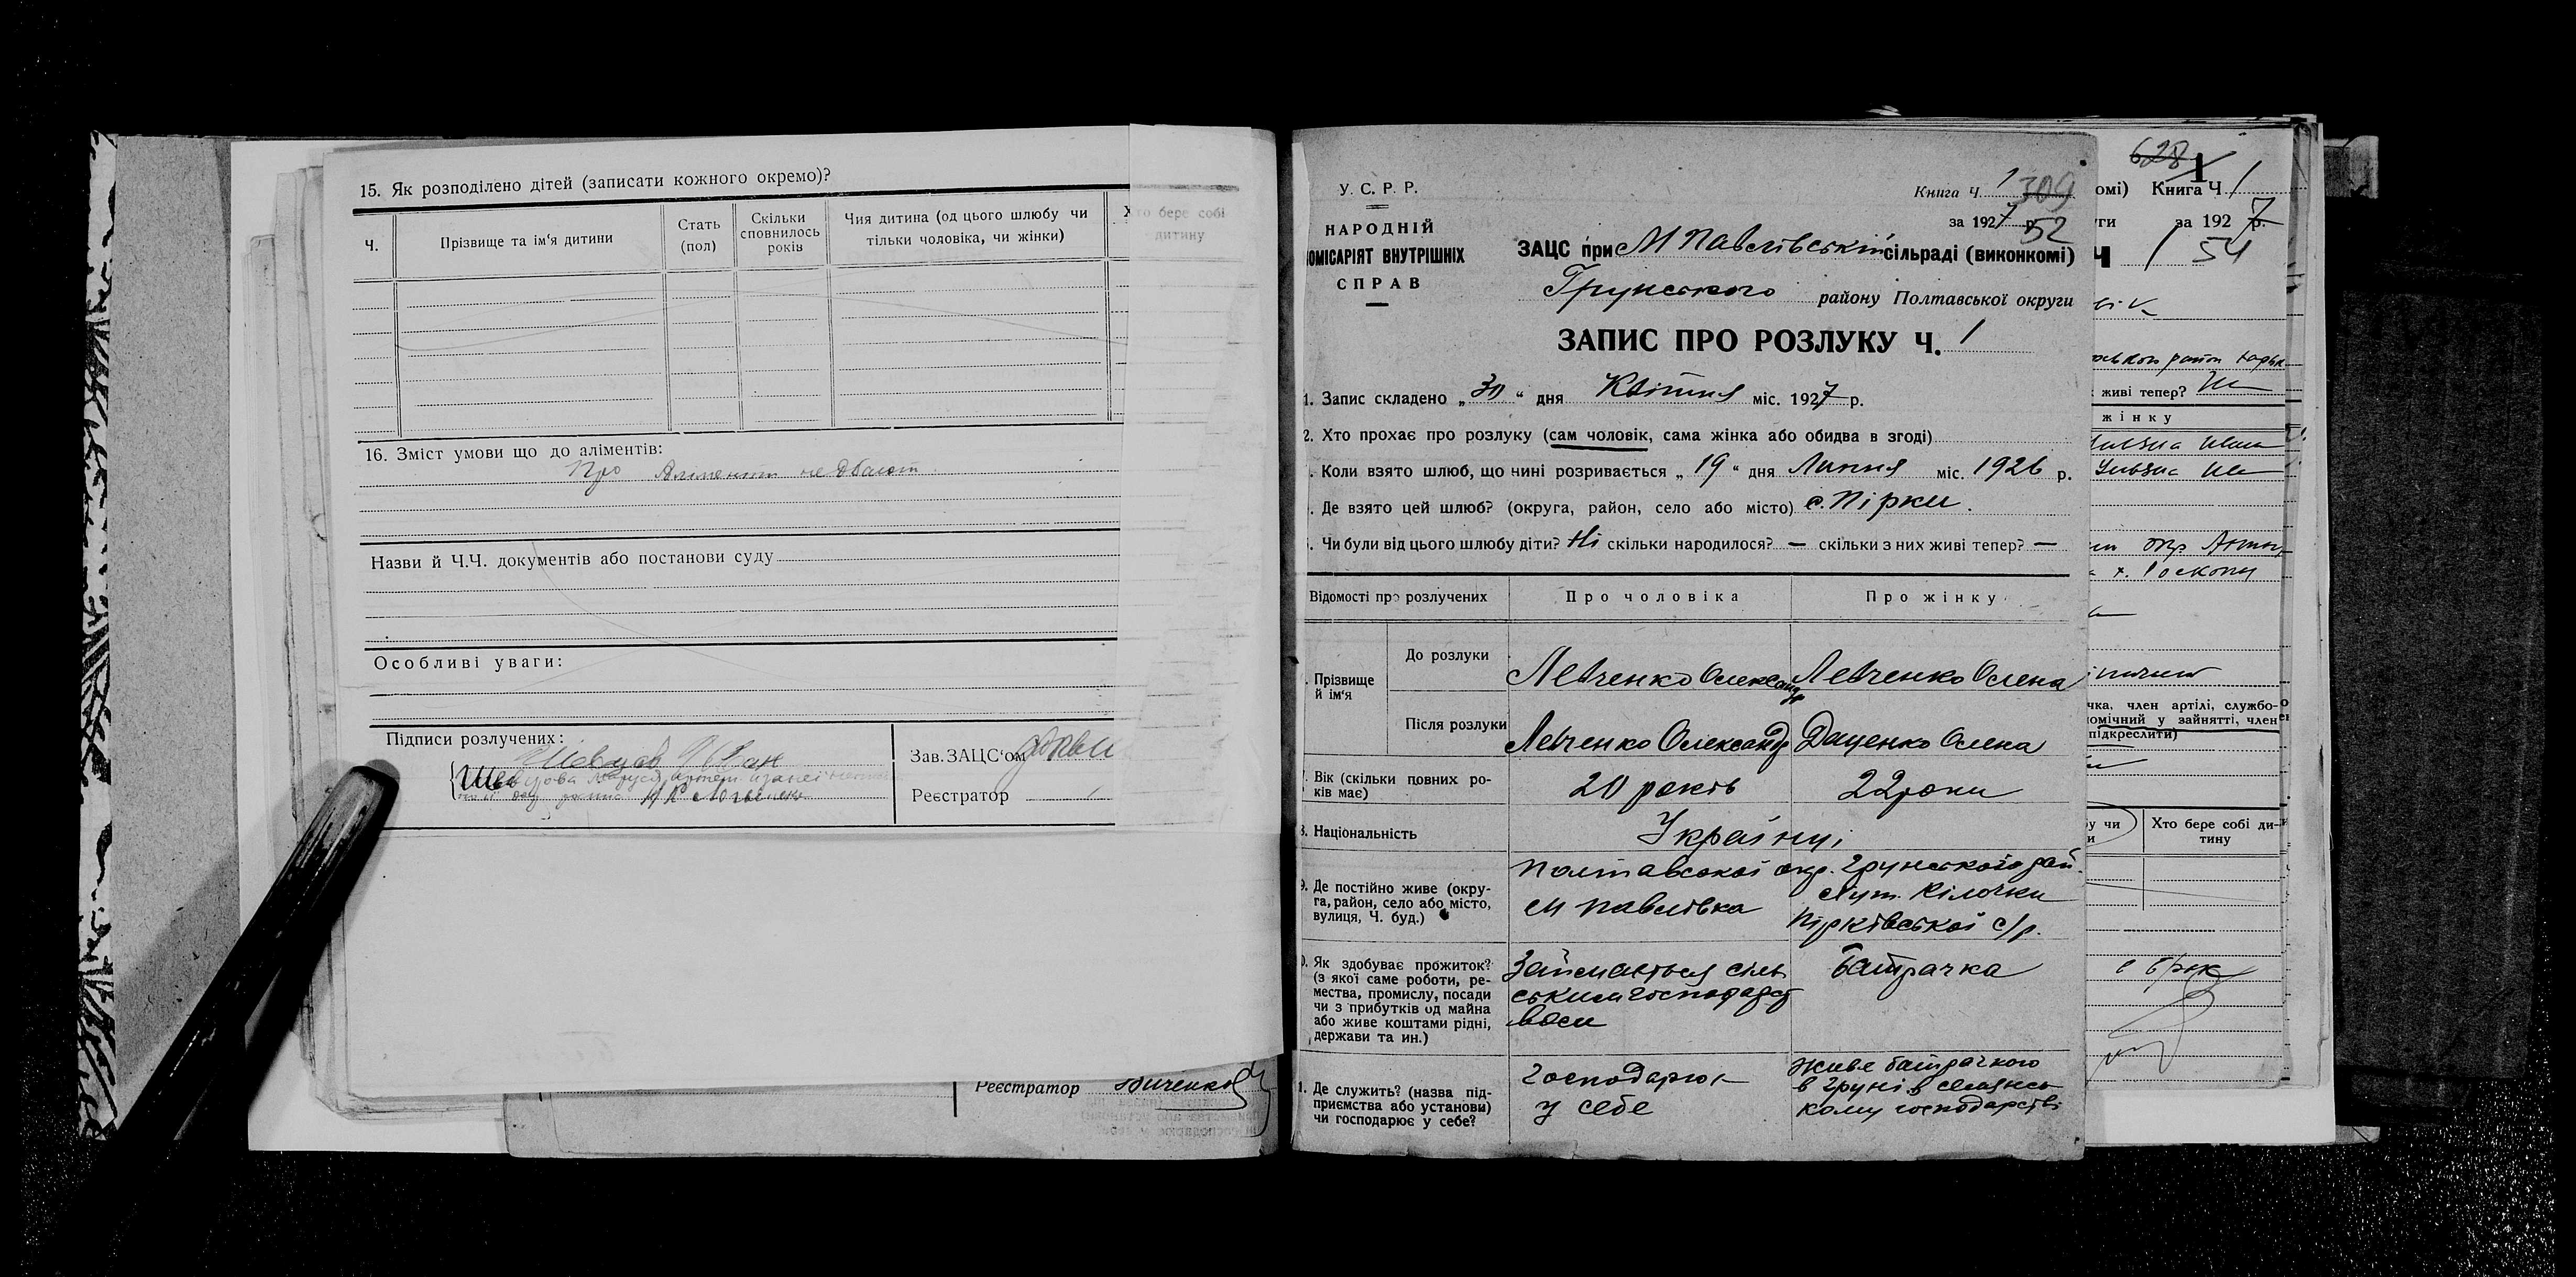 15. Як розподілено дітей (записати кожного окремо)?
Ч.
Прізвище та ім'я дитини
Стать (пол)
Скільки сповнилось років
Чия дитина (од цього шлюбу чи тільки чоловіка, чи жінки)
Хто бере собі дитину
16. Зміст умови що до аліментів:
Про Алименти не дбають
Назви й Ч.Ч. документів або постанови суду
Особливі уваги:
Підписи розлучених:
Зав. ЗАЦС'ом
Реєстратор
Реєстратор
У. С. Р. Р.
НАРОДНІЙ
КОМІСАРІЯТ ВНУТРІШНІХ
СПРАВ
Книга Ч. 1 309
за 1927 р. 52
ЗАЦС при М Павлівській сільраді (виконкомі)
Грунського району Полтавської округи
ЗАПИС ПРО РОЗЛУКУ Ч. 1
1. Запис складено „30" дня Квітня міс. 1927 р.
2. Хто прохає про розлуку (сам чоловік, сама жінка або обидва в згоді)
. Коли взято шлюб, що нині розривається „19" дня Липня міс. 1926 р.
. Де взято цей шлюб? (округа, район, село або місто) с. Пірки.
. Чи були від цього шлюбу діти? Ні скільки народилося? — скільки з них живі тепер? —
Відомості про розлучених
Про чоловіка
Про жінку
. Прізвище й ім'я
До розлуки
Левченко Олександр
Левченко Олена
Після розлуки
Левченко Олександр
Даценко Олена
. Вік (скільки повних років має)
20 років
22 роки
8. Національність
Українці
9. Де постійно живе (округа, район, село або місто, вулиця, Ч. буд.)
Полтавської окр. Грунського рай.
М Павлівка
хут. Кілочки
Пірківської с/р.
0. Як здобуває прожиток? (з якої саме роботи, ремества, промислу, посади чи з прибутків од майна або живе коштами рідні, держави та ин.)
Займається сіль
ським господарст
вом
Батрачка
1. Де служить? (назва підприємства або установи) чи господарює у себе?
господарює
у себе
живе батрачкою
в Груні в селянсь
кому господарстві
628
омі) Книга Ч 1
ги за 1927 р.
Ч 1 54
живі тепер?
жінку
чка, член артілі, службо-
омічний у зайнятті, член
підкреслити)
у чи
и
Хто бере собі дитину